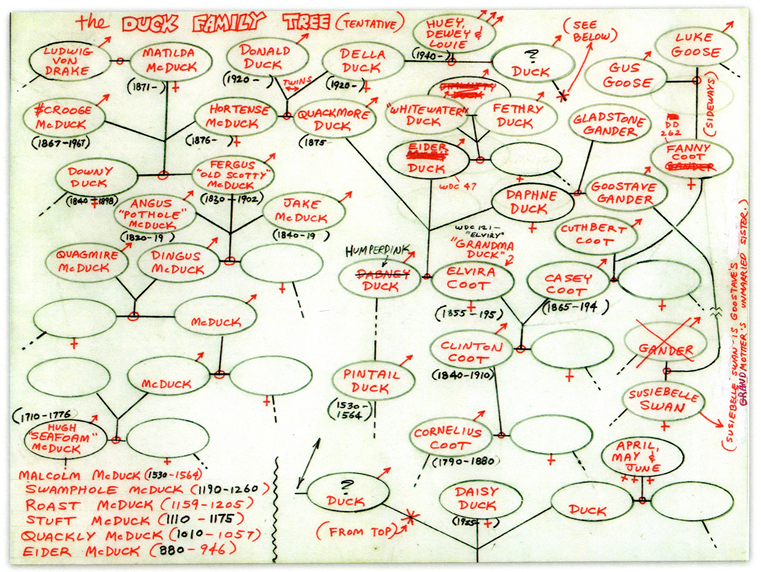 the DUCK FAMILY TREE (TENTATIVE)
HUEY,
DEWEY &
LOUIE
(1940-)
(SEE
BELOW)
LUKE
GOOSE
LUDWIG
VON
DRAKE
MATILDA
McDUCK
(1871-)
DONALD
DUCK
(1920-)
TWINS
DELLA
DUCK
(1920-)
?
DUCK
GUS
GOOSE
(SIDEWAYS)
$CROOGE
McDUCK
(1867-1967)
HORTENSE
McDUCK
(1876-)
QUACKMORE
DUCK
(1875-
"WHITEWATER"
DUCK
FETHRY
DUCK
GLADSTONE
GANDER
DD
262
FANNY
COOT
GANDER
EIDER
DUCK
WDC 47
DOWNY
DUCK
(1840-1898)
FERGUS
"OLD SCOTTY"
McDUCK
(1830-1902)
DAPHNE
DUCK
GOOSTAVE
GANDER
ANGUS
"POTHOLE"
McDUCK
(1820-19)
JAKE
McDUCK
(1840-19)
WDC 121-
"ELVIRY"
"GRANDMA
DUCK"?
CUTHBERT
COOT
QUAGMIRE
McDUCK
DINGUS
McDUCK
HUMPERDINK
DABNEY
DUCK
ELVIRA
COOT
(1855-195)
CASEY
COOT
(1865-194)
McDUCK
CLINTON
COOT
(1840-1910)
GANDER
McDUCK
PINTAIL
DUCK
(1530-
1564)
SUSIEBELLE
SWAN
(SUSIEBELLE SWAN IS GOOSTAVE'S
GRANDMOTHER'S UNMARRIED SISTER.)
(1710-1776
HUGH
"SEAFOAM"
McDUCK
CORNELIUS
COOT
(1790-1880)
APRIL,
MAY &
JUNE
MALCOLM McDUCK (1530-1564)
SWAMPHOLE McDUCK (1190-1260)
ROAST McDUCK (1159-1205)
STUFT McDUCK (1110-1175)
QUACKLY McDUCK (1010-1057)
EIDER McDUCK (880-946)
?
DUCK
(FROM TOP)
DAISY
DUCK
(1925-
DUCK